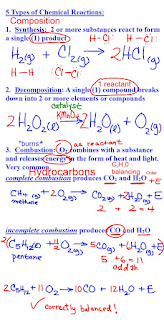 5 Types of Chemical Reactions:
Composition
1. Synthesis: 2 or more substances react to form
a single (1) product. H· Cl: H–Cl:
H₂(g) + Cl₂(g) → 2HCl(g)
H–H Cl–Cl
1 reactant
2. Decomposition: A single (1) compound breaks
down into 2 or more elements or compounds
catalyst
KMnO₄
2H₂O₂(l) → 2H₂O(l) + O₂(g)
"burns" as reactant
3. Combustion: O₂ combines with a substance
and releases energy in the form of heat and light.
Very common. C,H,O balancing Order
complete combustion produces CO₂ and H₂O +E
CH₄(g) + 2O₂(g) → CO₂(g) + 2H₂O(g) + E
methane 2 + 2 = 4
incomplete combustion produces CO and H₂O
2(C₅H₁₂(l) + 11/2 O₂(g) → 5CO(g) + 6H₂O(g) + E)
pentane 5 + 6 = 11
odd #
2C₅H₁₂ + 11O₂ → 10CO + 12H₂O + E
✓ correctly balanced!